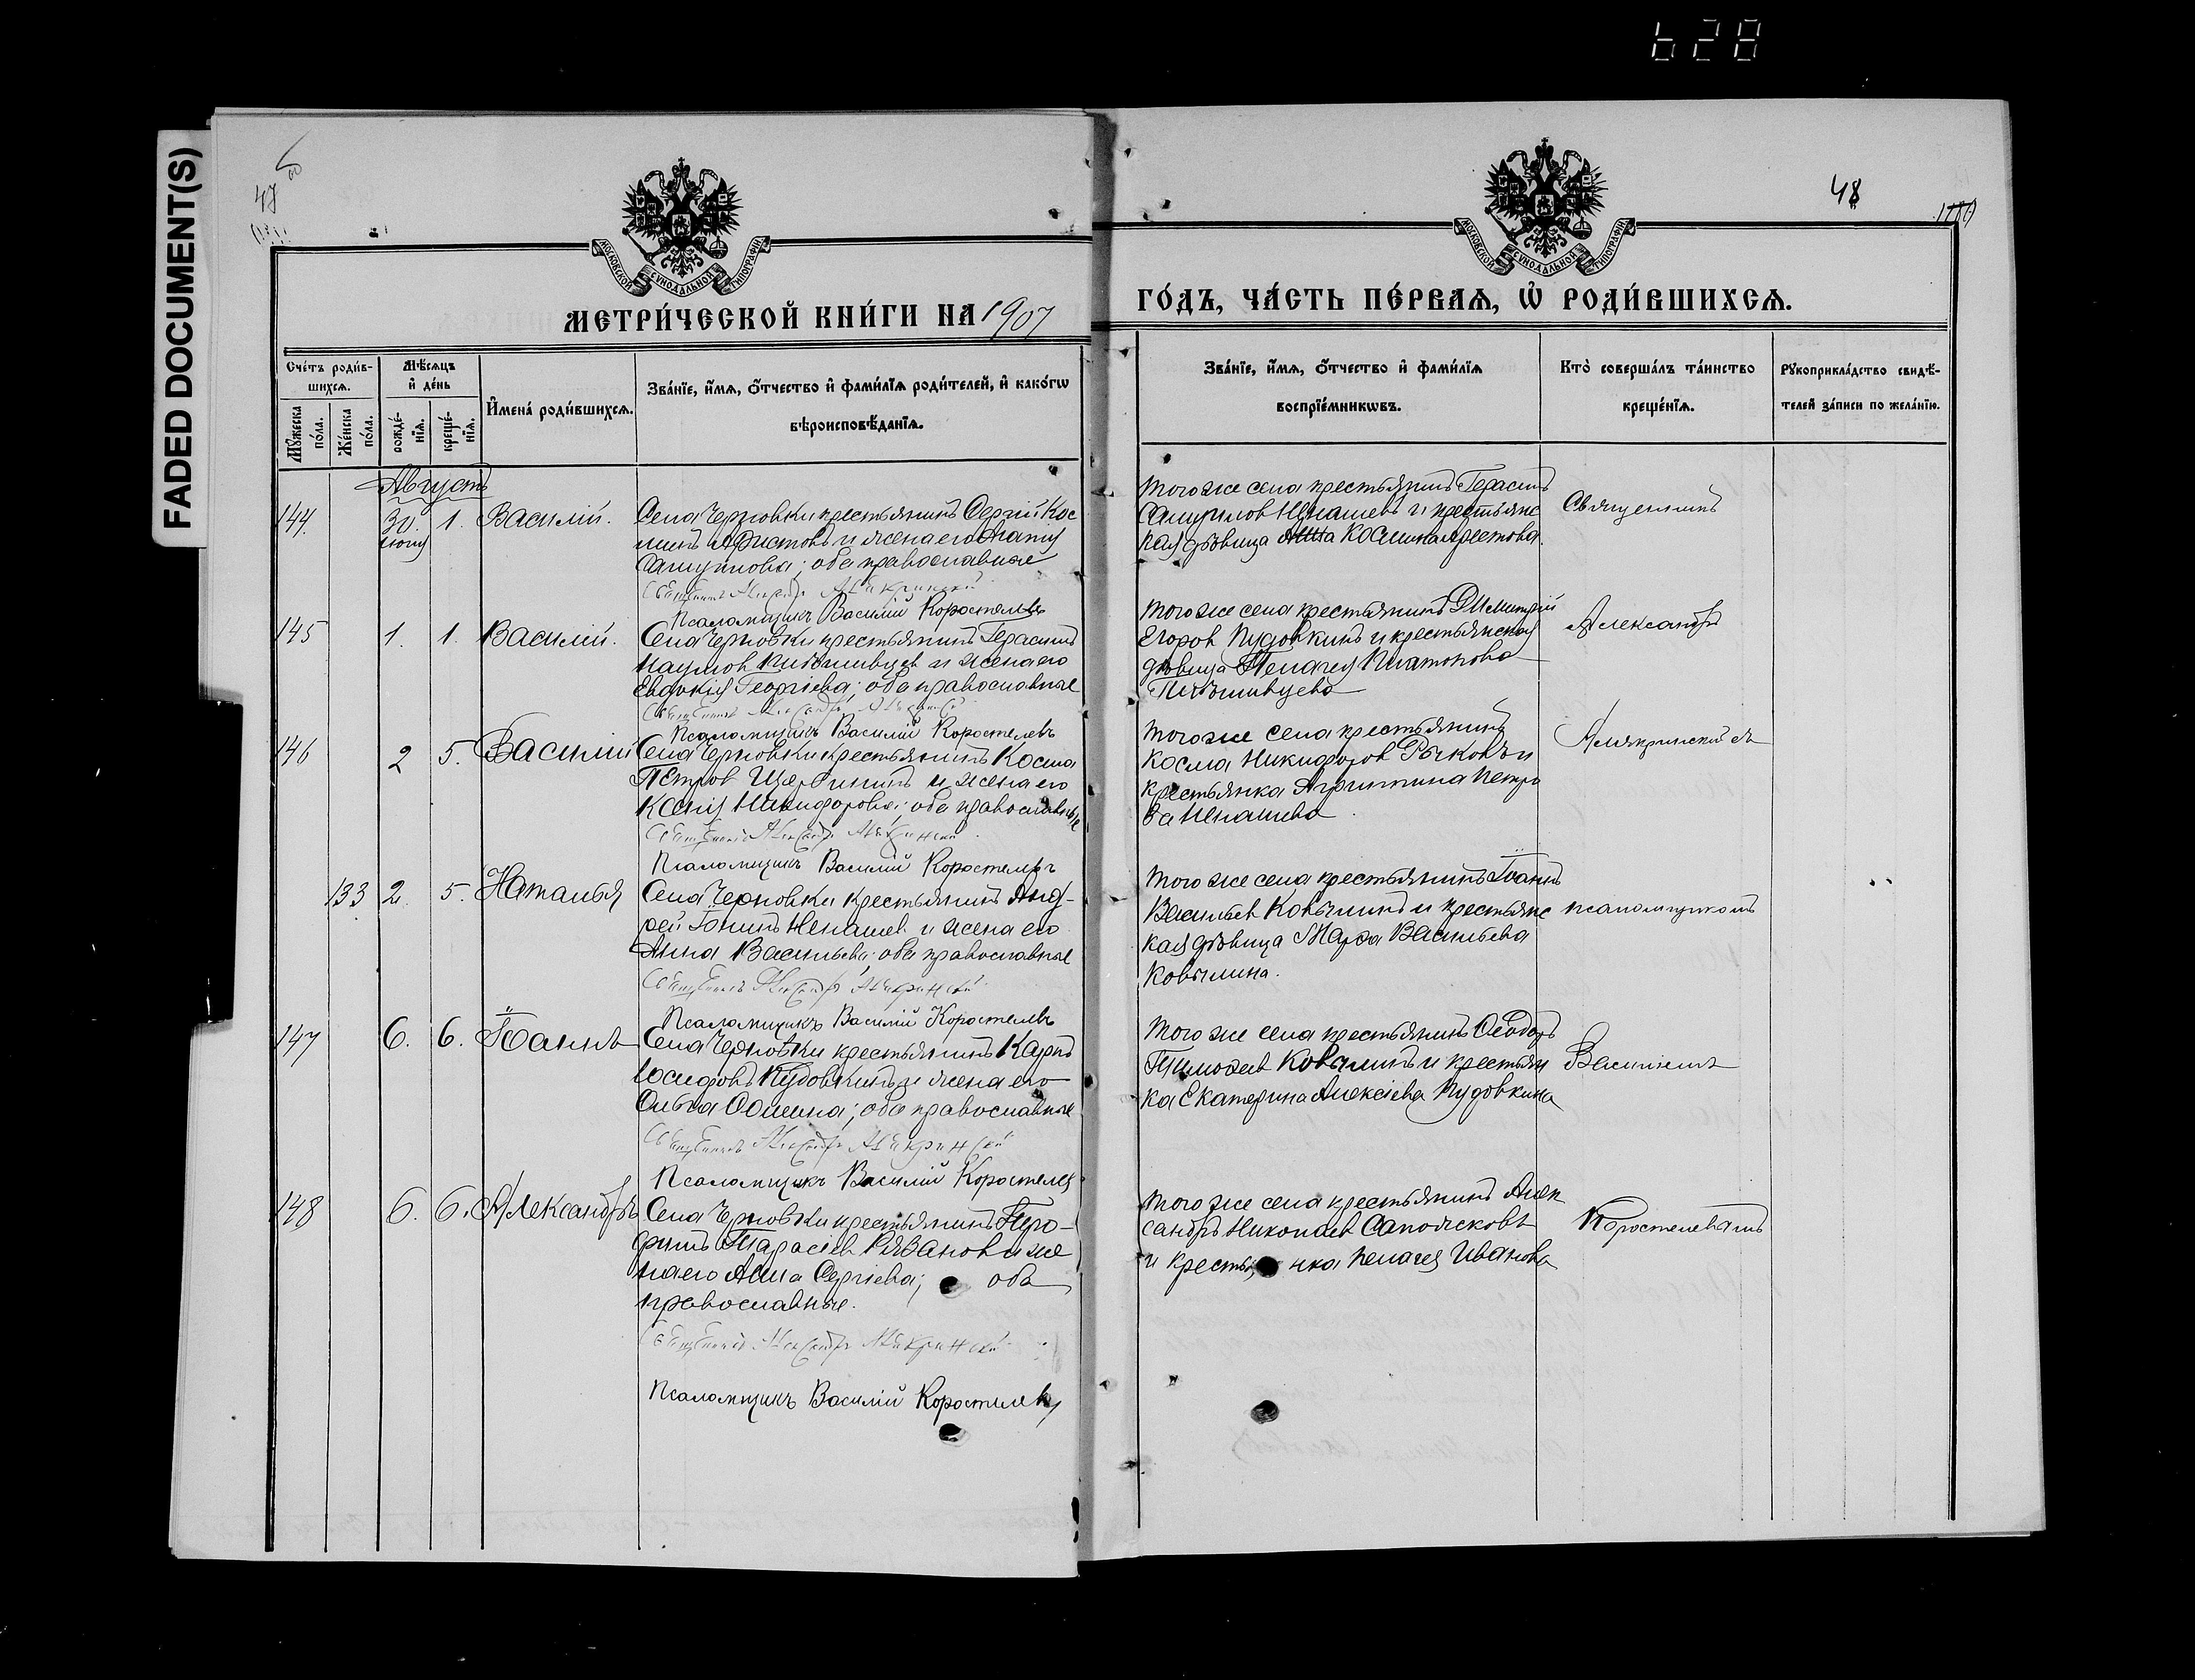 628
FADED DOCUMENT(S)
47
48
МОСКОВСКОЙ СѴНОДАЛЬНОЙ ТИПОГРАФІИ
МОСКОВСКОЙ СѴНОДАЛЬНОЙ ТИПОГРАФІИ
МЕТРИ́ЧЕСКОЙ КНИ́ГИ НА 1907
ГО́ДЪ, ЧА́СТЬ ПЕ́РВАѦ, Ѽ РОДИ́ВШИХСѦ.
Сче́тъ роди́в-
шихсѧ.
Мꙋ́жеска по́ла.
Же́нска по́ла.
Мѣ́сѧцъ
и҆ де́нь
рожде́-
нїѧ.
креще́-
нїѧ.
И҆мена̀ роди́вшихсѧ.
Зва́нїе, и҆́мѧ, ѻ҆́тчество и҆ фами́лїѧ роди́телей, и҆ како́гѡ
вѣроисповѣ́данїѧ.
Зва́нїе, и҆́мѧ, ѻ҆́тчество и҆ фами́лїѧ
воспрїе́мникѡвъ.
Кто̀ соверша́лъ та́инство
креще́нїѧ.
Рꙋкоприкла́дство свидѣ́-
телей за́писи по жела́нїю.
Августъ
144. 30. 1. Василій.
июля
Села Черновки крестьянинъ Сергій Кос
минъ Аристовъ и жена его
Самуилова; оба православные
Священникъ Александръ
Псаломщикъ Василій Коростелевъ
Того же села крестьянинъ Герасимъ
Самуилов Ненашевъ и крестьянс
кая дѣвица Анна Космина Аристова.
Священникъ
145 1. 1. Василій.
Села Черновки крестьянинъ Герасимъ
Наумов и жена его
Евдокія Георгіева; оба православные
Священникъ Александръ
Псаломщикъ Василій Коростелевъ
Того же села крестьянинъ Димитрій
Егоров Пудовкинъ и крестьянская
дѣвица Пелагея Платонова
Александръ
146 2 5. Василій
Села Черновки крестьянинъ Косма
Петров Щербининъ и жена его
Ксенія Никифорова; оба православные
Священникъ Александръ
Псаломщикъ Василій Коростелевъ
Того же села крестьянинъ
Косма Никифоров Рычковъ и
крестьянка Агриппина Петро
ва Ненашева
133 2. 5. Наталья
Села Черновки крестьянинъ Анд-
рей Іонинъ Ненашев и жена его
Анна Васильева; оба православные
Священникъ Александръ
Псаломщикъ Василій Коростелевъ
Того же села крестьянинъ Іоаннъ
Васильев Ковылинъ и крестьянс
кая дѣвица Марѳа Васильева
Ковылина.
псаломщикомъ
147 6. 6. Іоаннъ
Села Черновки крестьянинъ Карпъ
Іосифовъ Пудовкинъ и жена его
Ольга Ѳомина; оба православные
Священникъ Александръ
Псаломщикъ Василій Коростелев
Того же села крестьянинъ Ѳеодоръ
Тимоѳеев Ковылинъ и крестьян
ка Екатерина Алексіева Пудовкина
Василіемъ
148 6. 6. Александръ
Села Черновки крестьянинъ Тро-
фимъ Тарасіев Рязанов и же
на его Анна Сергіева; оба
православные.
Священникъ Александръ
Псаломщикъ Василій Коростелевъ
Того же села крестьянинъ Алек
сандръ Николаев Сапожсковъ
и крестьянка Пелагея Иванова
Коростелевымъ